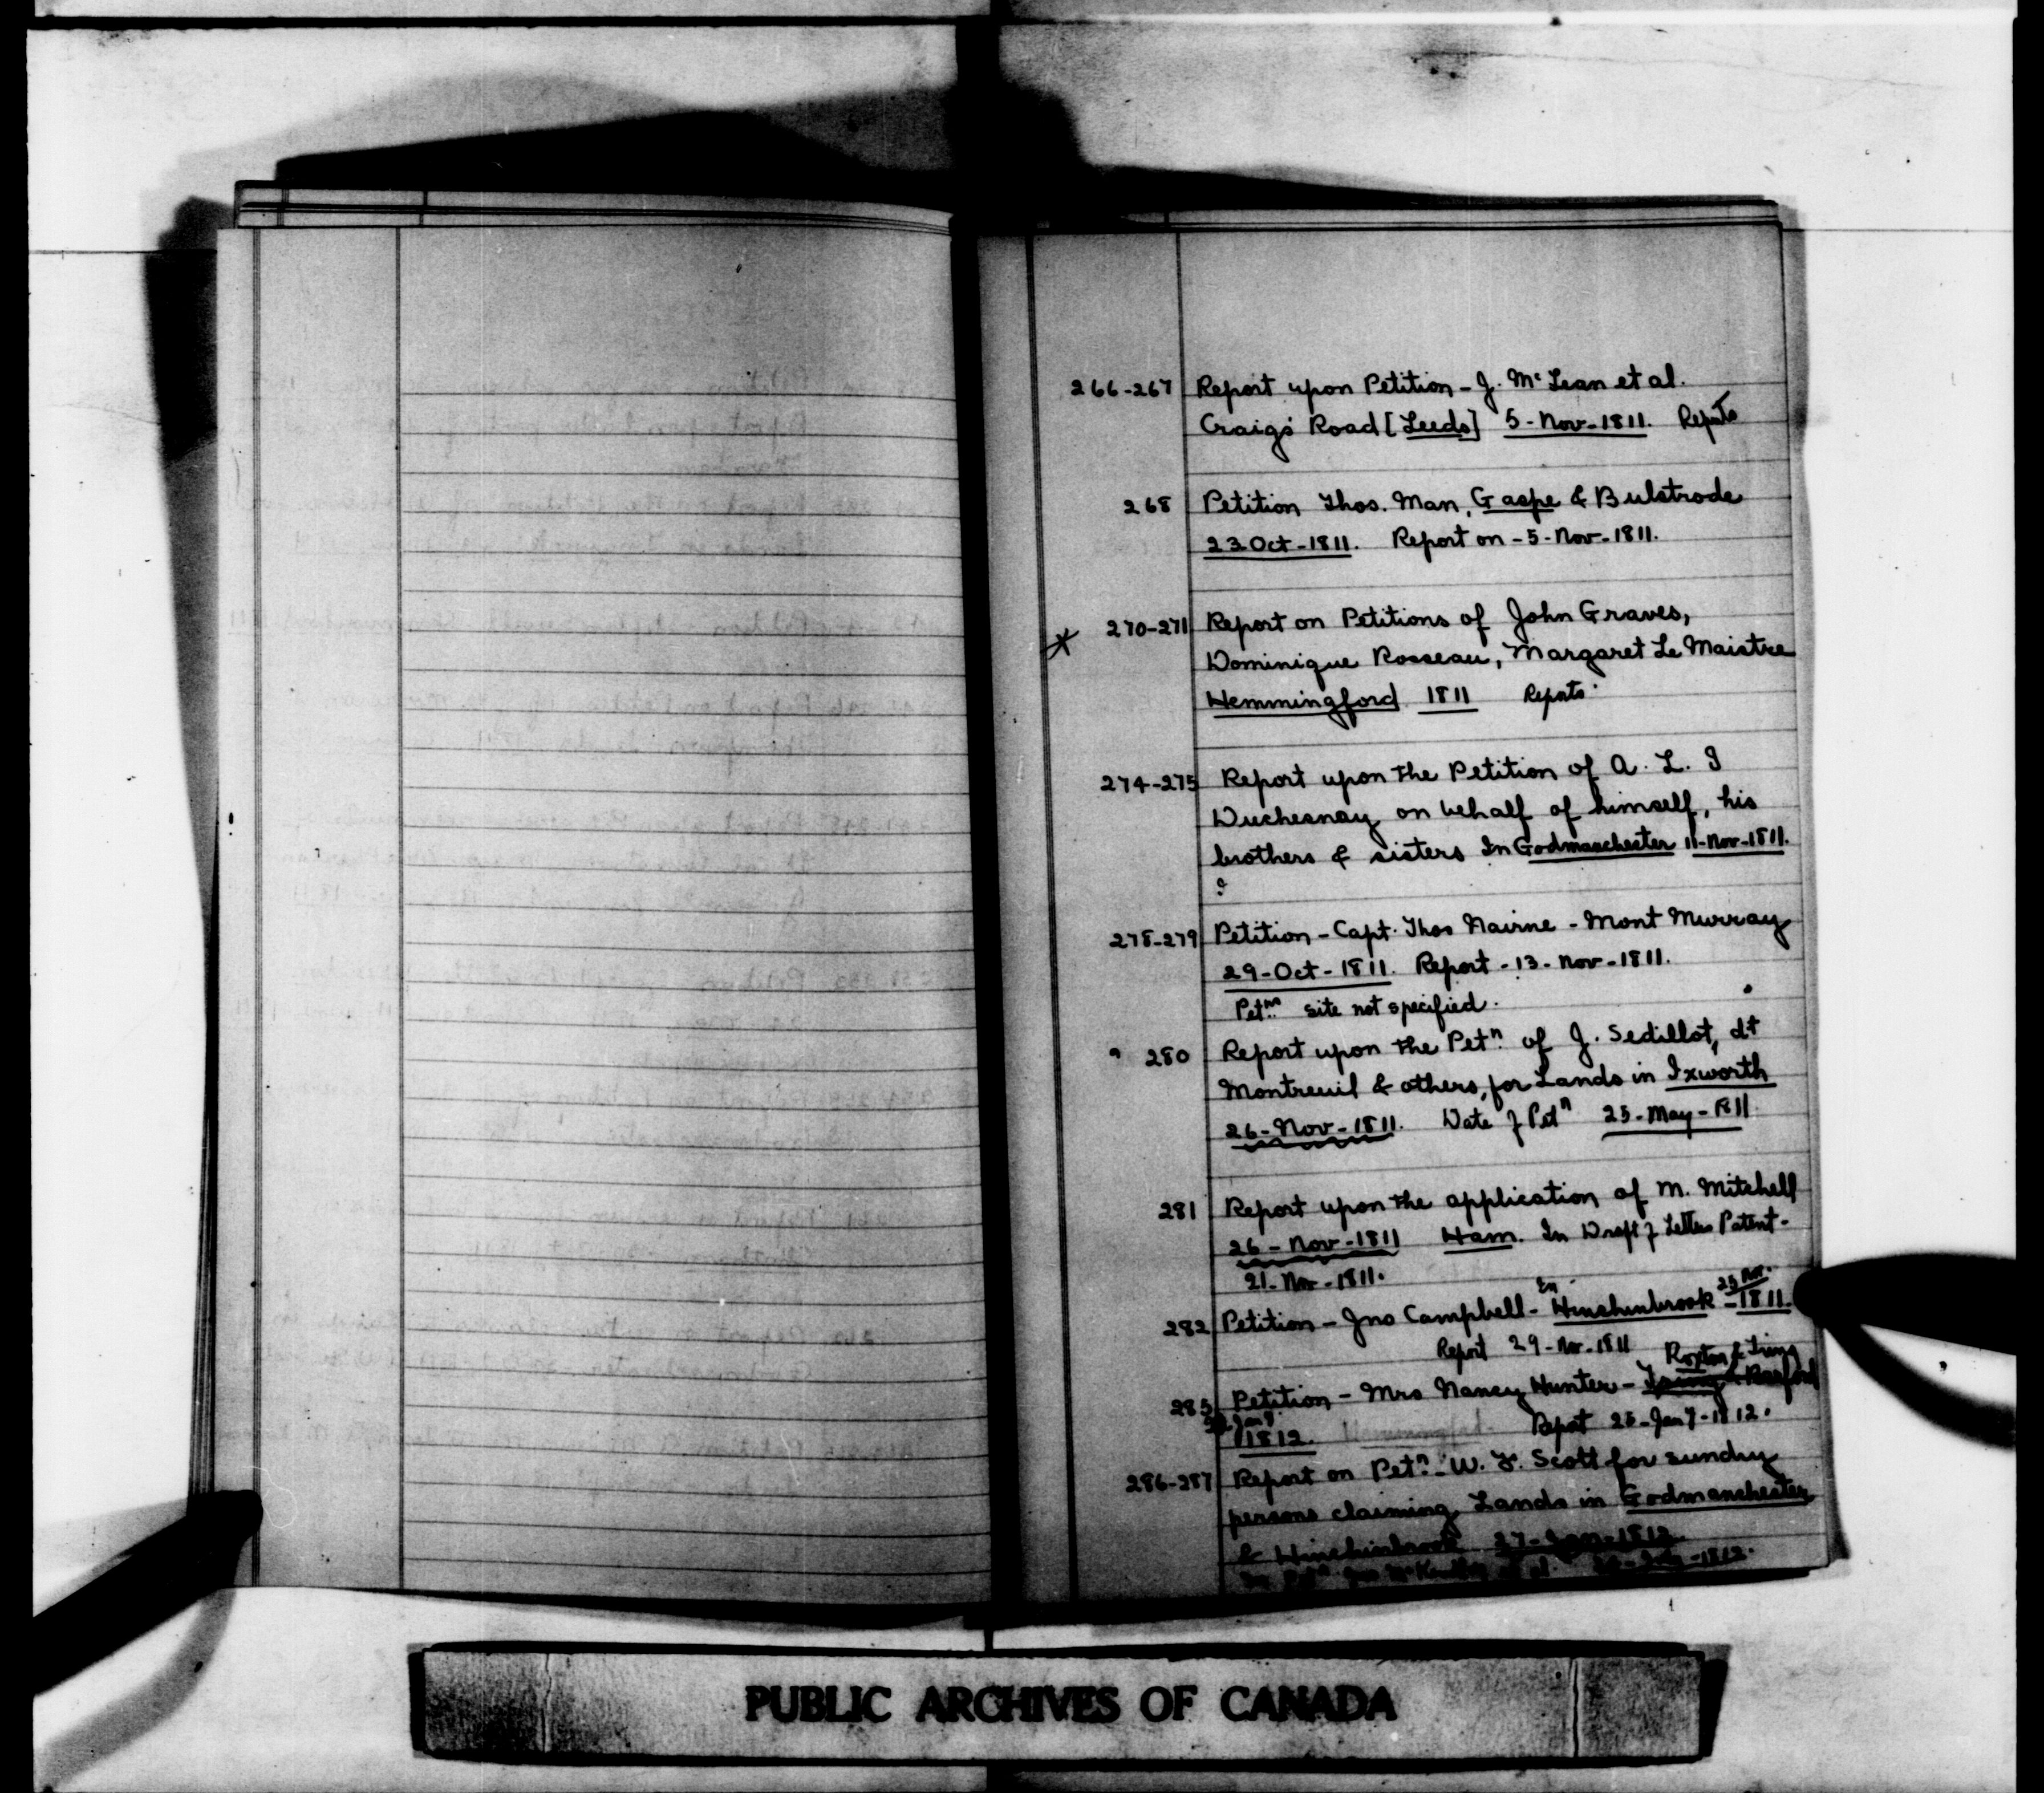 266-267 Report upon Petition - J. McLean et al.
Craigs Road [Leeds] 5-Nov-1811. Repts
268 Petition Thos. Man, Gaspe & Bulstrode
23 Oct-1811. Report on - 5-Nov-1811.
270-271 Report on Petitions of John Graves,
Dominique Rosseau, Margaret Le Maistre
Hemmingford 1811 Repts
274-275 Report upon the Petition of A. L. J
Duchesnay on behalf of himself, his
brothers & sisters In Godmanchester 11-Nov-1811.
278-279 Petition - Capt. Thos Nairne - Mont Murray
29-Oct-1811. Report - 13-Nov-1811.
Petn site not specified.
280 Report upon the Petn of J. Sedillot, dt
Montreuil & others, for Lands in Ixworth
26-Nov-1811. Date of Petn 25-May-1811
281 Report upon the application of M. Mitchell
26-Nov-1811 Ham. In Draft of Letters Patent-
21-Nov-1811.
282 Petition - Jno Campbell - In Hinchinbrook 25 Nov. -1811.
Report 29-Nov-1811 Roxton &
285 Petition - Mrs Nancy Hunter -
1812. Report 25-Jany-1812.
286-287 Report on Petn. W. F. Scott for sundry
persons claiming Lands in Godmanchester
& Hinchinbrook 27-Jan-1812
-1812.
PUBLIC ARCHIVES OF CANADA